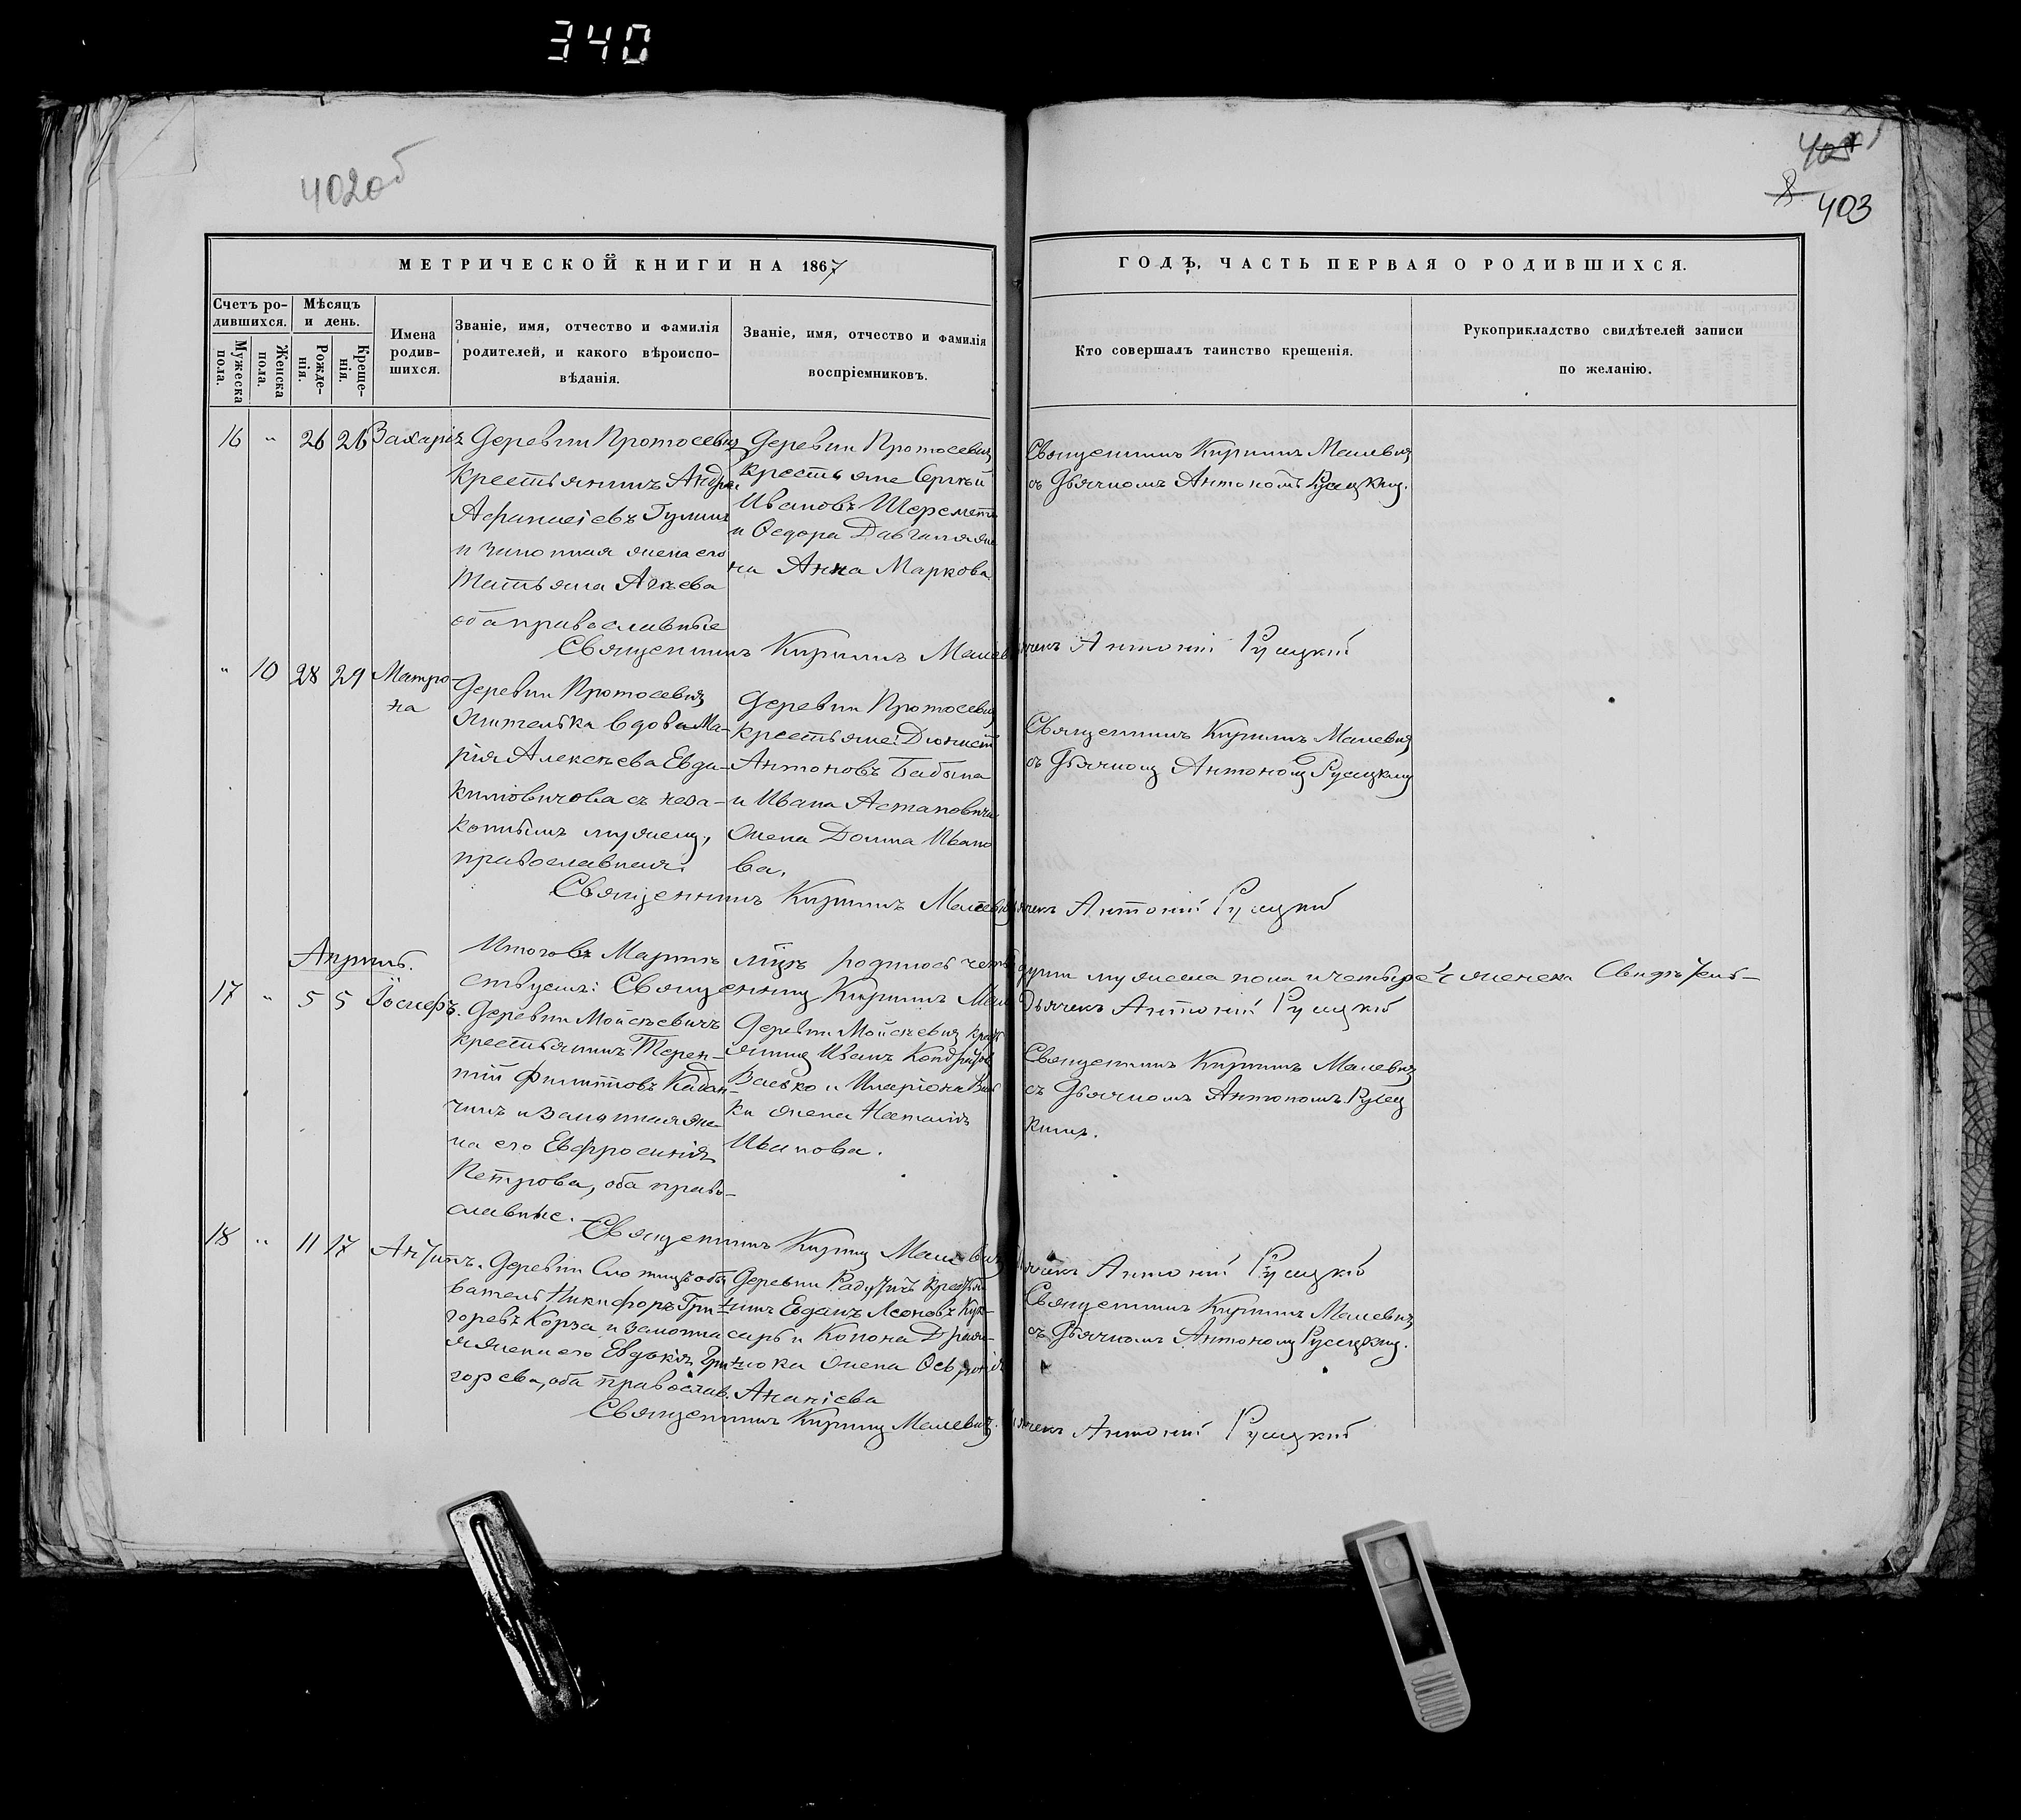 340
402об
403
МЕТРИЧЕСКОЙ КНИГИ НА 1867
ГОДЪ, ЧАСТЬ ПЕРВАЯ О РОДИВШИХСЯ.
Счетъ ро-
дившихся.
Мужеска
пола.
Женска
пола.
Мѣсяцъ
и день.
Рожде-
нія.
Креще-
нія.
Имена
родив-
шихся.
Званіе, имя, отчество и фамилія
родителей, и какого вѣроиспо-
вѣданія.
Званіе, имя, отчество и фамилія
воспріемниковъ.
Кто совершалъ таинство крещенія.
Рукоприкладство свидѣтелей записи
по желанію.
16 " 26 26 Захарія
Деревни Протосевичъ
крестьянинъ Андрей
Афанасіевъ
и законная жена его
Татьяна
оба православные
Деревни Протосевичъ
крестьяне Сергѣй
Ивановъ Шереметъ
и Ѳедора жe
на Анна Маркова
Священникъ Кириллъ Малевичъ
съ Дьячкомъ Антономъ Русецкимъ.
Священникъ Кириллъ Малевичъ Дьячекъ Антоній Русецкій
" 10 28 29 Матро
на
Деревни Протосевичъ
жителька вдова Ма-
рія Алексѣева Евдо-
кимовичова съ неза-
коннымъ мужемъ,
православная.
Деревни Протосевичъ
крестьяне: Діонисій
Антоновъ Бабына
и Ивана Астаповича
жена Домна Ивано
ва.
Священникъ Кириллъ Малевичъ
съ Дьячкомъ Антономъ Русецкимъ
Священникъ Кириллъ Малевичъ Дьячекъ Антоній Русецкій
Итого въ Мартѣ м͠цѣ родилось четыре души мужеска пола и четыре женска Свидѣтель-
ствуемъ: Священникъ Кириллъ Малевичъ Дьячекъ Антоній Русецкій
Апрѣль.
17 " 5 5 Іосифъ.
Деревни Мойсѣевичъ
крестьянинъ Терен-
тій Филиповъ
и законная же-
на его Евфросинія
Петрова, оба право-
славные.
Деревни Мойсѣевичъ крест
янинъ Иванъ
Валько и Иларіона Валь
ки жена Наталія
Иванова.
Священникъ Кириллъ Малевичъ
съ Дьячкомъ Антономъ Русец
кимъ.
Священникъ Кириллъ Малевичъ Дьячекъ Антоній Русецкій
18 " 11 17 Антипъ.
Деревни обы
ватель Никифоръ Гри-
горевъ Корза и законна
я жена его Евдокія Гри-
горева, оба православ.
Деревни Радутичъ крестья
нинъ Леоновъ
и Конона
жена Ѳевронія
Ананіева
Священникъ Кириллъ Малевичъ
съ Дьячкомъ Антономъ Русецкимъ.
Священникъ Кириллъ Малевичъ. Дьячекъ Антоній Русецкій